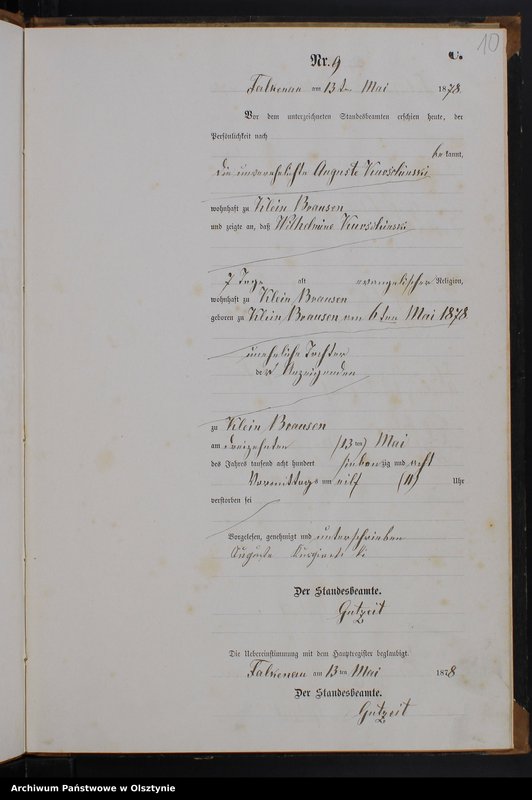 10
Nr. 9
C.
Falkenau am 13ten Mai 1878
Vor dem unterzeichneten Standesbeamten erschien heute, der
Persönlichkeit nach
be kannt,
die unverehelichte Auguste
wohnhaft zu Klein Bräusen
und zeigte an, daß Wilhelmine
7 Tage alt evangelischer Religion,
wohnhaft zu Klein Bräusen
geboren zu Klein Bräusen am 6ten Mai 1878
uneheliche Tochter
der Anzeigenden
zu Klein Bräusen
am dreizehnten (13ten) Mai
des Jahres tausend acht hundert sieben zig und acht
Vormittags um eilf (11) Uhr
verstorben sei
Vorgelesen, genehmigt und unterschrieben
Auguste
Der Standesbeamte.
Gutzeit
Die Uebereinstimmung mit dem Hauptregister beglaubigt.
Falkenau am 13ten Mai 1878
Der Standesbeamte.
Gutzeit
Archiwum Państwowe w Olsztynie